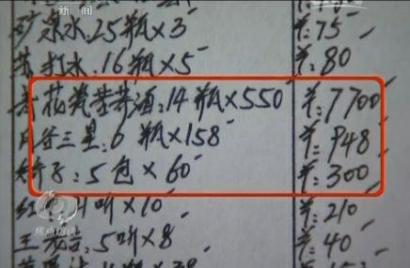 新闻
矿泉水:25瓶×3 ¥:75
苏打水:16瓶×5 ¥:80
花瓷 酒:14瓶×550 ¥:7700
三星:6瓶×158 ¥:948
5包×60 ¥:300
听×10 ¥:210
王老吉:5听×8 ¥:40